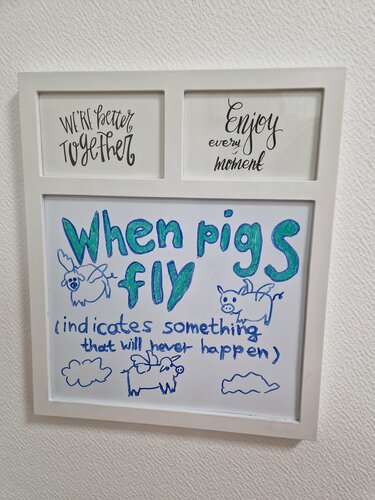 WE'RE better
TOgETHER
Enjoy
every
moment
When pigs
fly
(indicates something
that will never happen)